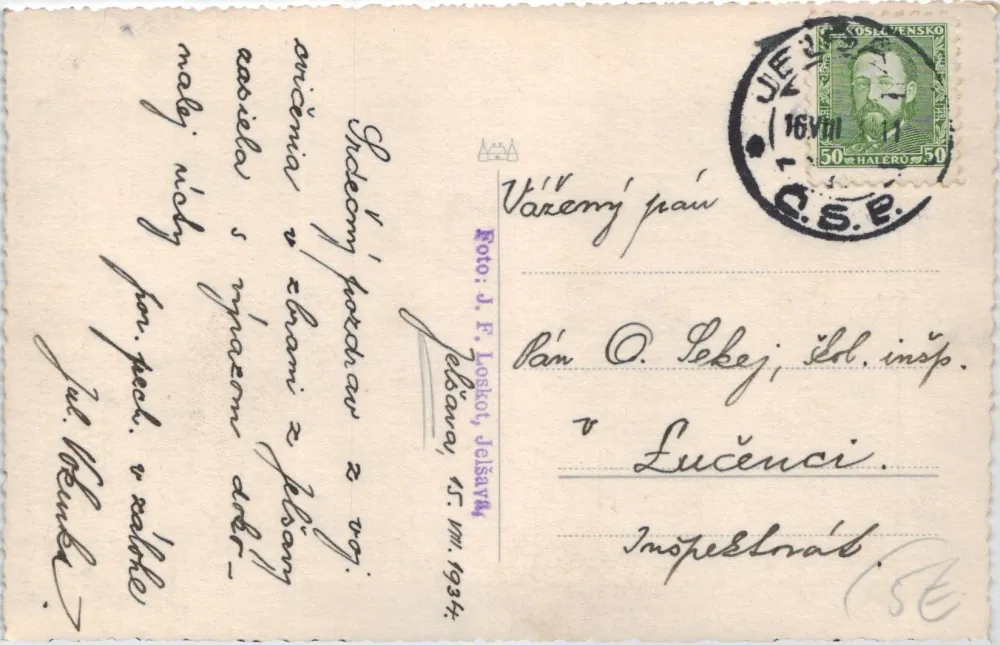 Jelšava, 15. VIII. 1934.
Srdečný pozdrav z voj.
cvičenia v zbrani z Jelšavy
zasiela s výrazom doko-
nalej úcty
por. pech. v zálohe
Jul.
Foto: J. F. Loskot, Jelšava,
Vážený pán
Pán O. Sekej, škol. inšp.
v
Lučenci.
Inšpektorát
ČESKOSLOVENSKO
50 HALÉŘŮ 50
16 VIII
Č.S.P.
5E